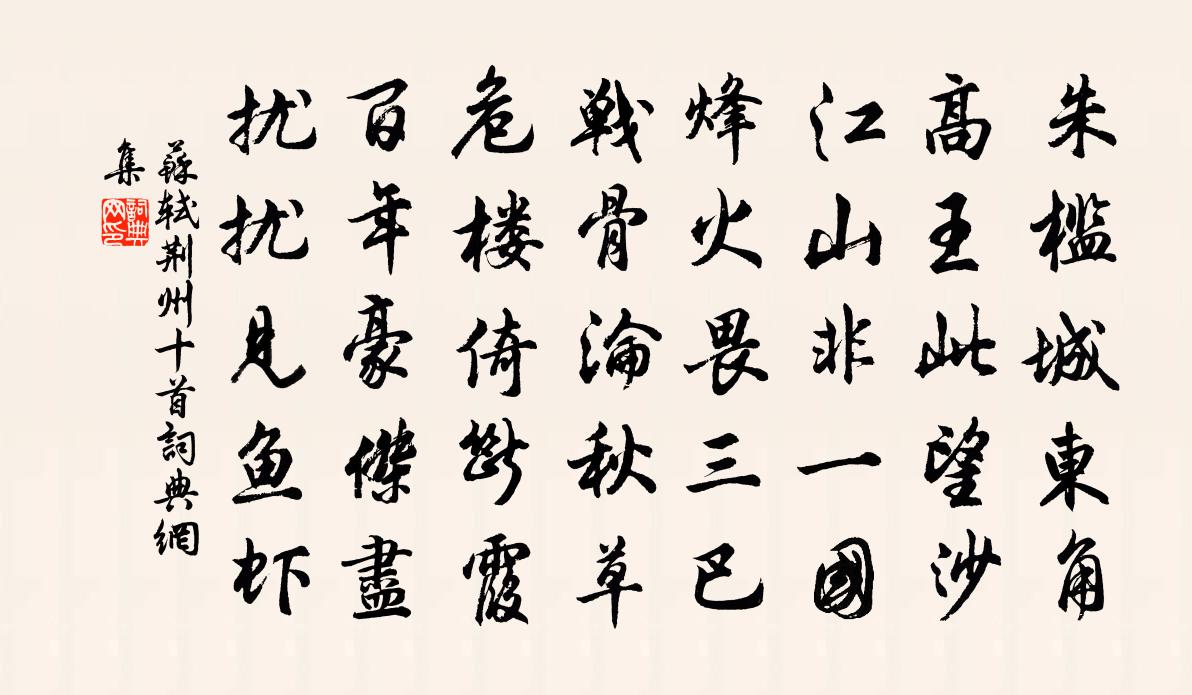 朱檻城東角
高王此望沙
江山非一國
烽火畏三巴
戰骨淪秋草
危楼倚斷霞
百年豪傑盡
扰扰見鱼虾
蘇軾荆州十首詞典網
集
詞典
网印